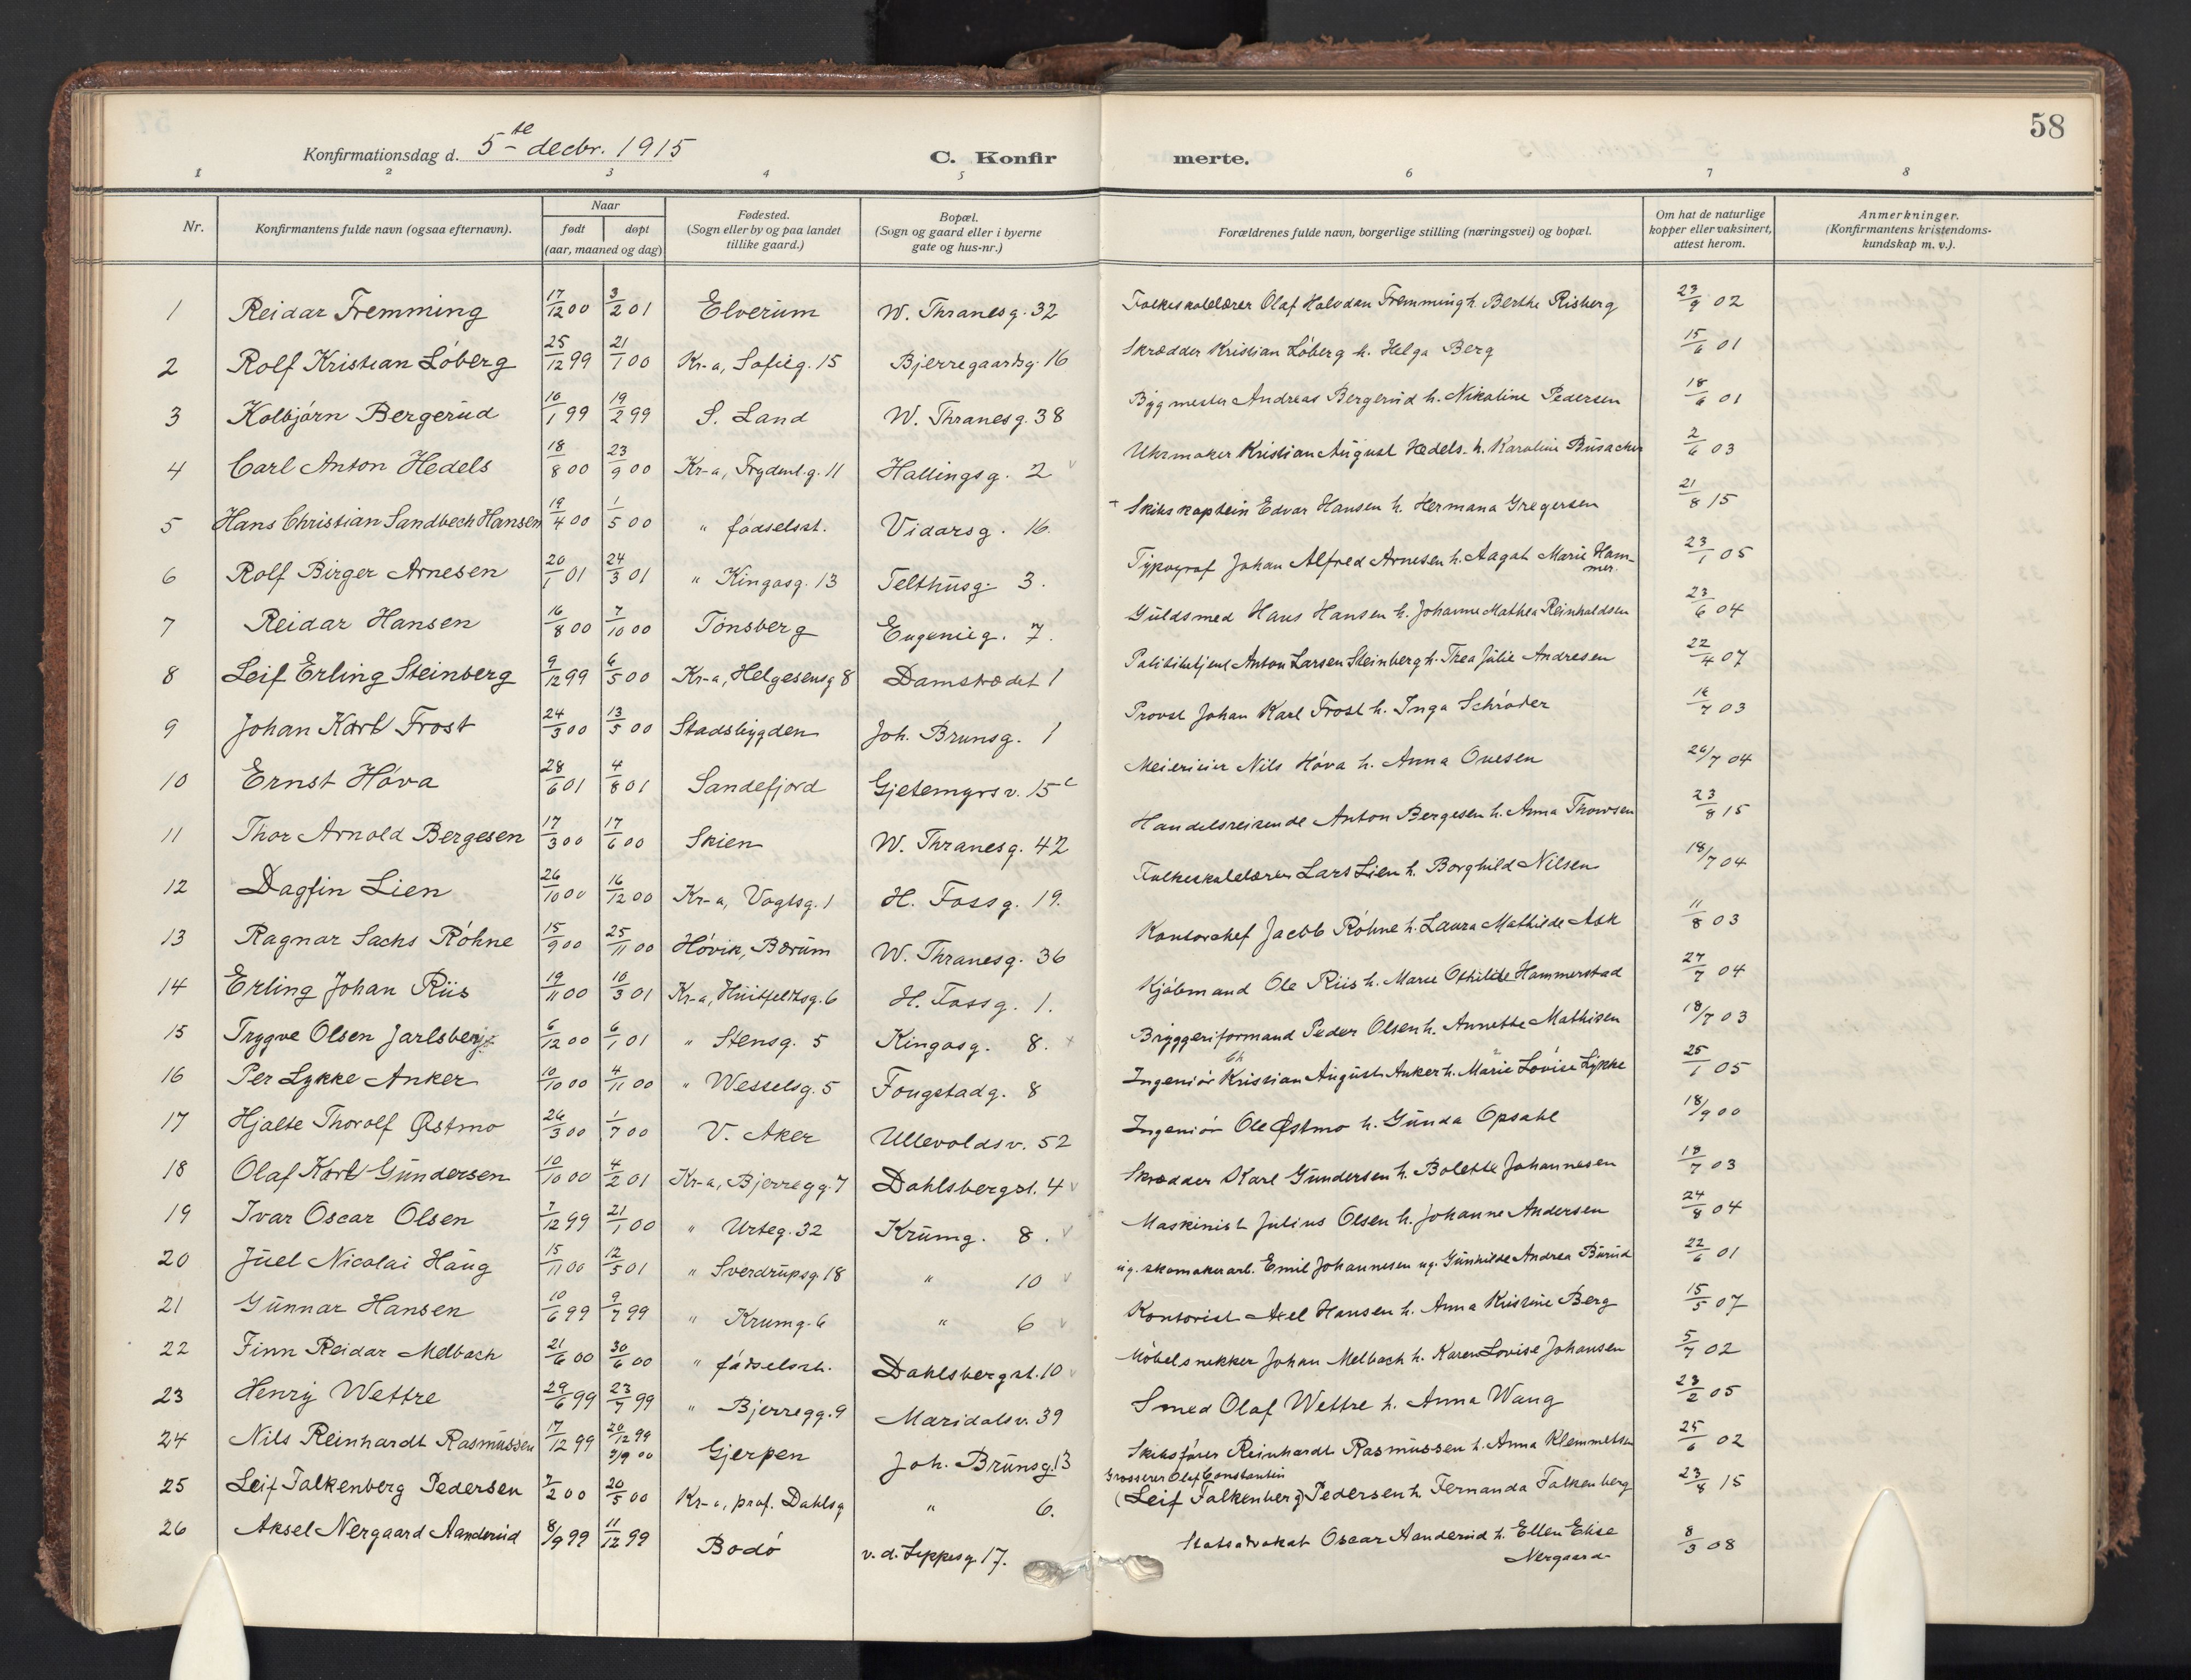 58
Konfirmationsdag d. 5te decbr. 1915 C. Konfir merte.
1 2 3 4 5 6 7 8
Nr. Konfirmantens fulde navn (ogsaa efternavn). Naar født døpt (aar, maaned og dag) Fødested. (Sogn eller by og paa landet tillike gaard.) Bopæl. (Sogn og gaard eller i byerne gate og hus-nr.) Forældrenes fulde navn, borgerlige stilling (næringsvei) og bopæl. Om hat de naturlige kopper eller vaksinert, attest herom. Anmerkninger. (Konfirmantens kristendoms-kundskap m. v.).
1 Reidar Fremming 17/12 00 3/2 01 Elverum W. Thranesg. 32 Folkeskolelærer Olaf Halvdan Fremming h. Berthe Risberg 23/9 02
2 Rolf Kristian Löberg 25/12 99 21/1 00 Kr-a, Sofieg. 15 Bjerregaardsg. 16 Skrædder Kristian Löberg h. Helga Berg 15/6 01
3 Kolbjörn Bergerud 10/1 99 19/2 99 S. Land W. Thranesg. 38 Bygmester Andreas Bergerud h. Nikoline Pedersen 18/6 01
4 Carl Anton Hedels 18/8 00 23/9 00 Kr-a, Trydenl.g. 11 Hallingsg. 2 Uhrmaker Kristian August Hedels h. Karoline Busacker 2/6 03
5 Hans Christian Sandbech Hansen 19/4 00 1/5 00 " födselsst. Vidarsg. 16. + Skibskaptein Edvar Hansen h. Hermana Gregersen 21/8 15
6 Rolf Birger Arnesen 20/1 01 24/3 01 " Kingosg. 13 Telthusg. 3. Typograf Johan Alfred Arnesen h. Aagot Marie Ham-mer. 23/1 05
7 Reidar Hansen 16/8 00 7/10 00 Tönsberg Eugenieg. 7. Guldsmed Hans Hansen h. Johanne Mathea Reinholdsen 23/6 04
8 Leif Erling Steinberg 9/12 99 6/5 00 Kr-a, Helgesensg 8 Damstrædet 1 Politibetjent Anton Larsen Steinberg h. Thea Julie Andresen 22/4 07
9 Johan Karl Frost 24/3 00 13/5 00 Stadsbygden Joh. Brunsg. 1 Provst Johan Karl Frost h. Inga Schröder 16/7 03
10 Ernst Höva 28/6 01 4/8 01 Sandefjord Gjetemyrsv. 15 c Meierieier Nils Höva h. Anna Ovesen 26/7 04
11 Thor Arnold Bergesen 17/3 00 17/6 00 Skien W. Thranesg. 42 Handelsreisende Anton Bergesen h. Anna Thowsen 23/8 15
12 Dagfin Lien 26/10 00 16/12 00 Kr-a, Vogtsg. 1 H. Fossg. 19. Folkeskolelærer Lars Lien h. Borghild Nilsen 18/7 04
13 Ragnar Sachs Röhne 15/9 00 25/11 00 Hövik, Bærum W. Thranesg. 36 Kontorchef Jacob Röhne h. Laura Mathilde Ask 11/8 03
14 Erling Johan Riis 19/11 00 10/3 01 Kr-a, Huitfeldtsg. 6 H. Fossg. 1. Kjöbmand Ole Riis h. Marie Othilde Hammerstad 27/7 04
15 Trygve Olsen Jarlsberg 6/12 00 6/1 01 " Stensg. 5 Kingosg. 8. Bryggeriformand Peder Olsen h. Annette Mathisen 18/7 03
16 Per Lykke Anker 10/10 00 4/11 00 " Wesselsg. 5 Fougstadg. 8 Ingeniör Kristian Ch August Anker h. Marie Lovise Lykke 25/1 05
17 Hjalte Thorolf Østmo 26/3 00 1/7 00 V. Aker Ullevoldsv. 52 Ingeniör Ole Østmo h. Gunda Opsahl 18/9 00
18 Olaf Karl Gundersen 10/10 00 4/2 01 Kr-a, Bjerregg. 7 Dahlsbergst. 4 Skrædder Karl Gundersen h. Bolette Johannesen 18/7 03
19 Ivar Oscar Olsen 7/12 99 21/1 00 " Urteg. 32 Krumg. 8. Maskinist Julius Olsen h. Johanne Andersen 24/8 04
20 Juel Nicolai Haug 15/11 00 12/5 01 " Sverdrupsg. 18 " 10 ug. skomakerarb. Emil Johannesen ug. Gunhilde Andrea Burud 22/6 01
21 Gunnar Hansen 10/6 99 9/7 99 " Krumg. 6 " 6 Kontorist Axel Hansen h. Anna Kristine Berg 15/5 07
22 Finn Reidar Melbach 21/6 00 30/6 00 " födselsst. Dahlsbergst. 10 Möbelsnekker Johan Melbach h. Karen Lovise Johansen 5/7 02
23 Henry Wettre 29/6 99 23/7 99 " Bjerregg. 9 Maridalsv. 39 Smed Olaf Wettre h. Anna Wang 23/2 05
24 Nils Reinhardt Rasmussen 17/12 99 20/12 99 2/9 00 Gjerpen Joh. Brunsg. 13 Skibsförer Reinhardt Rasmussen h. Anna Klemmetsen 25/6 02
25 Leif Falkenberg Pedersen 7/2 00 20/5 00 Kr-a, prof. Dahlsg " 6. Grosserer Olaf Constantin (Leif Falkenberg) Pedersen h. Fernanda Falkenberg 23/8 15
26 Aksel Nergaard Aanderud 8/9 99 11/12 99 Bodö v. d. Lippesg. 17. Statsadvokat Oscar Aanderud h. Ellen Elise Nergaard 8/3 08